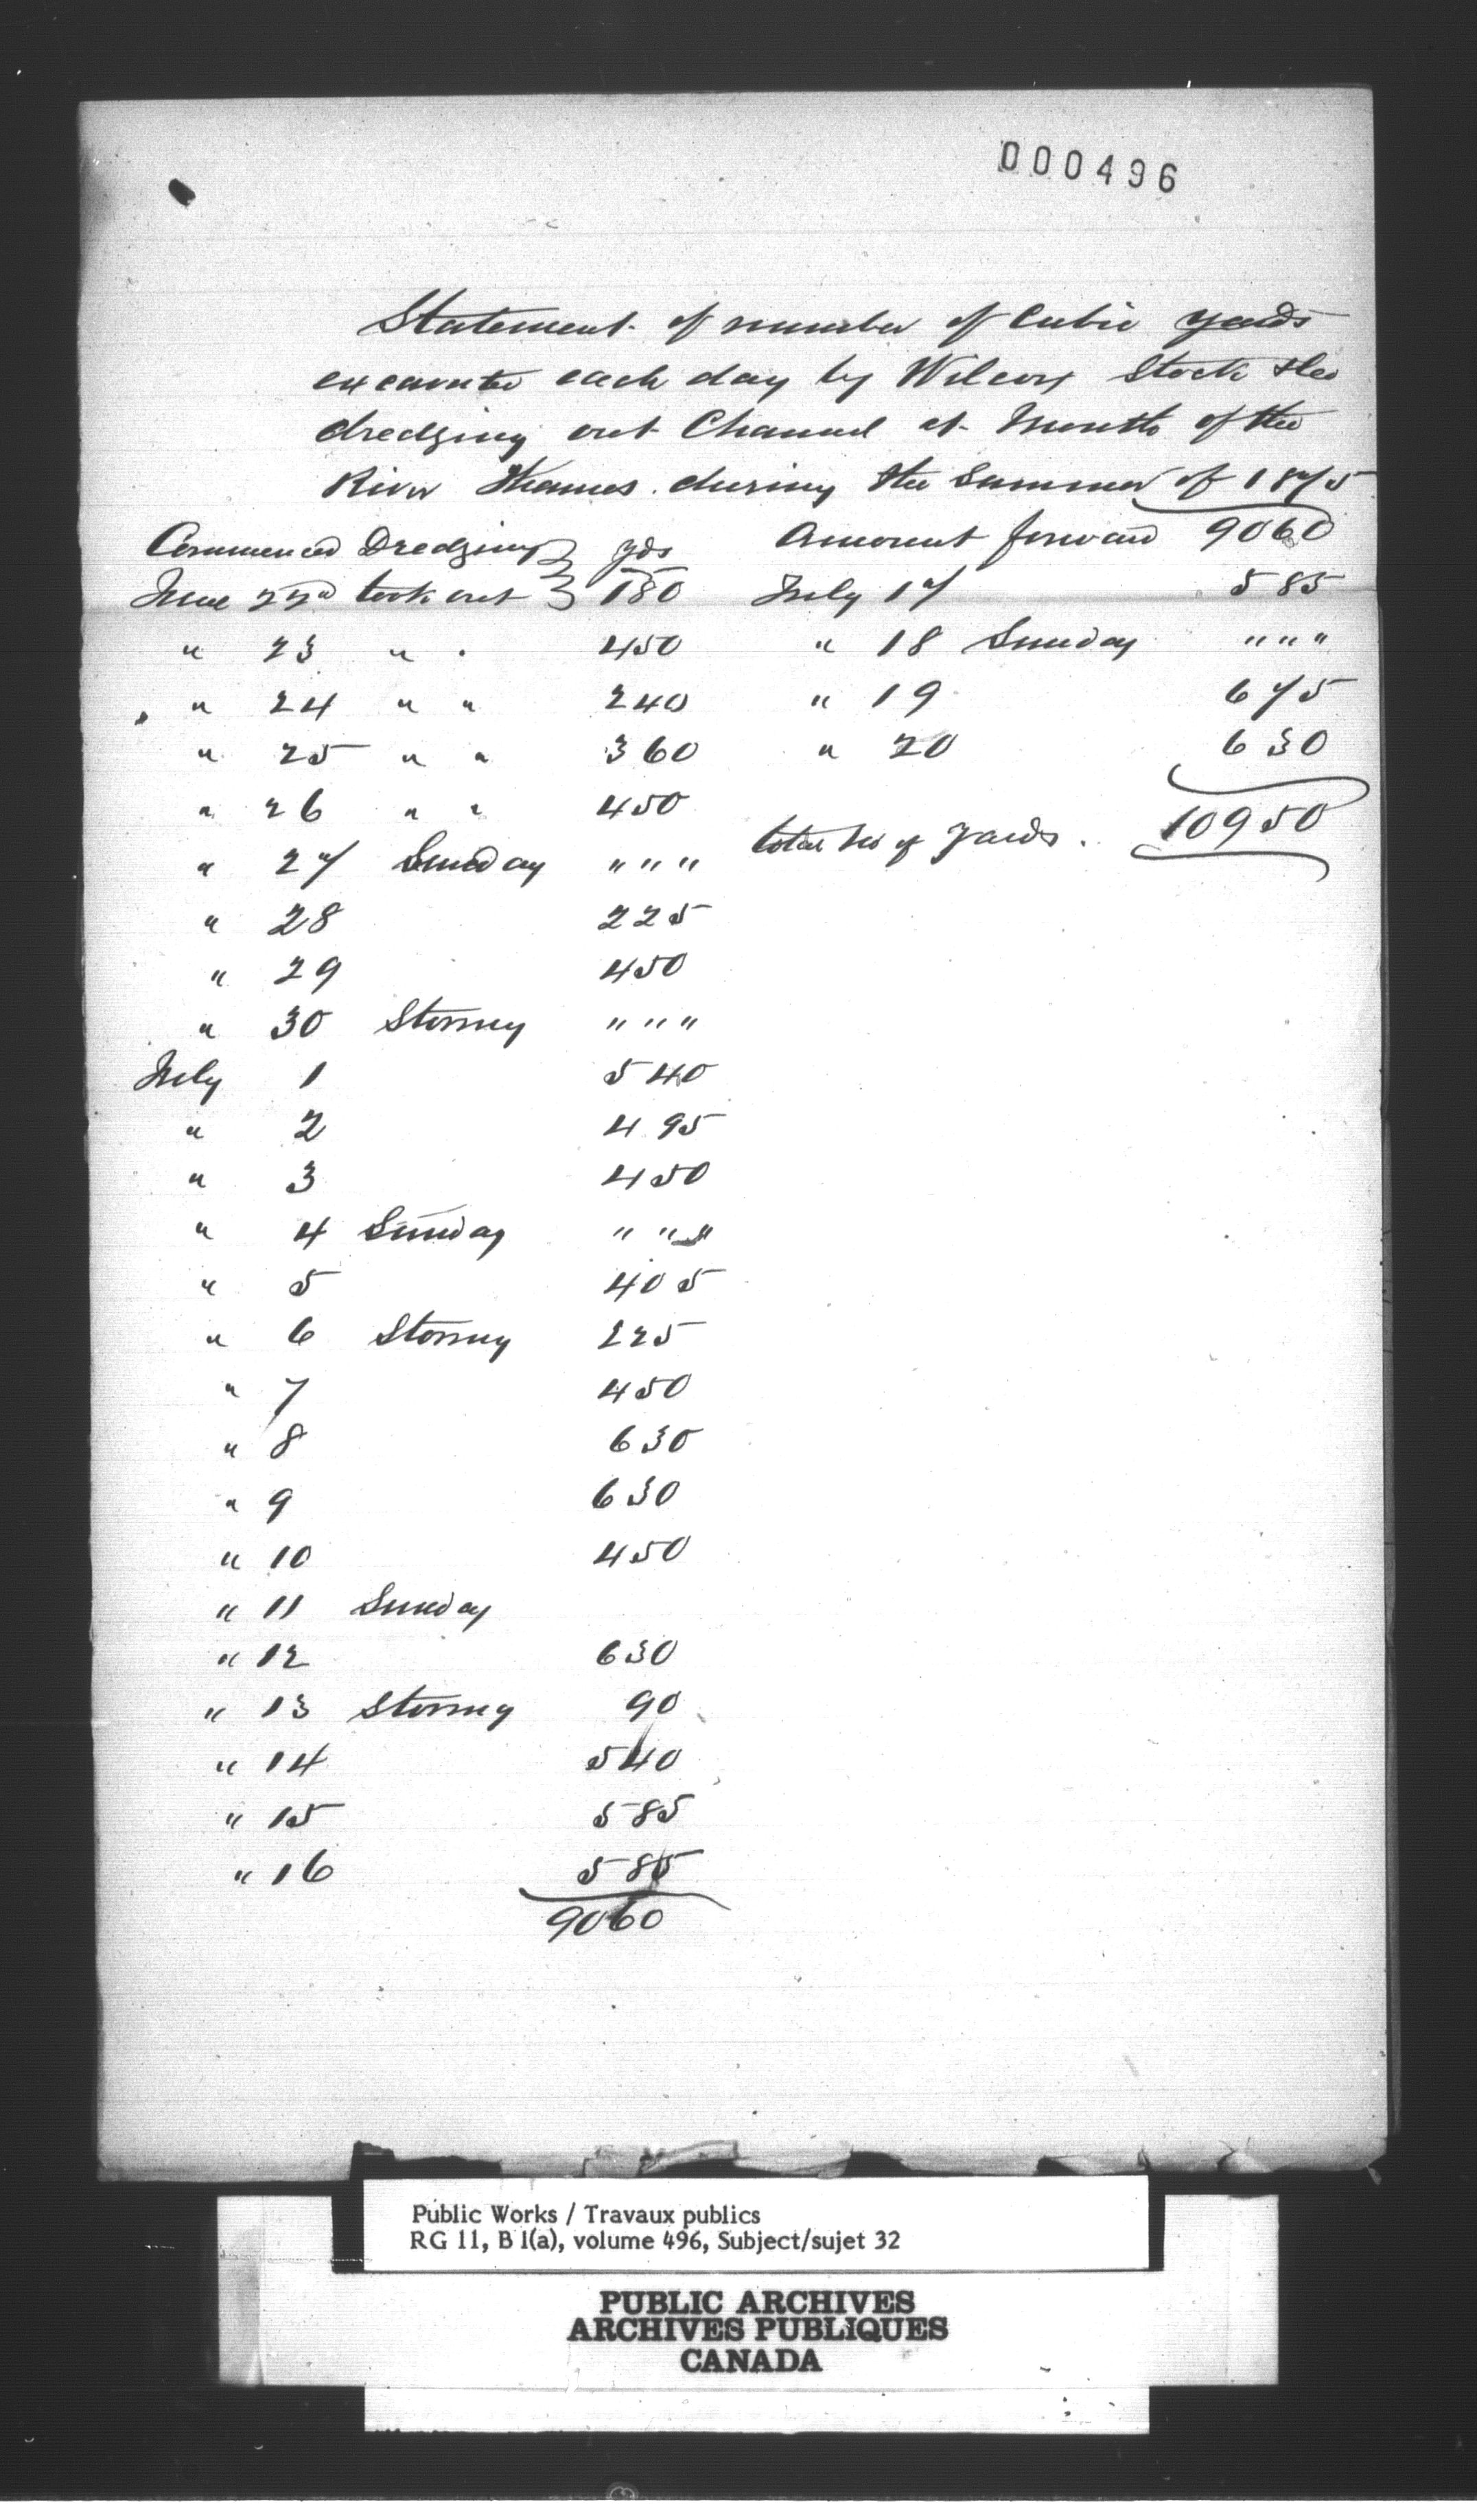 000496
Statement of number of Cubic yards
excavated each day by Wilcox Stock &
dredging out Channel at Mouth of the
River Thames during the Summer of 1875
Commenced Dredging yds
June 22nd took out 180
" 23 " " 450
" 24 " " 240
" 25 " " 360
" 26 " " 450
" 27 Sunday " " "
" 28 225
" 29 450
" 30 Stormy " " "
July 1 540
" 2 495
" 3 450
" 4 Sunday " " "
" 5 405
" 6 Stormy 225
" 7 450
" 8 630
" 9 630
" 10 450
" 11 Sunday
" 12 630
" 13 Stormy 90
" 14 540
" 15 585
" 16 585
9060
Amount forward 9060
July 17 585
" 18 Sunday " " "
" 19 675
" 20 630
total No of Yards. 10950
Public Works / Travaux publics
RG 11, B 1(a), volume 496, Subject/sujet 32
PUBLIC ARCHIVES
ARCHIVES PUBLIQUES
CANADA